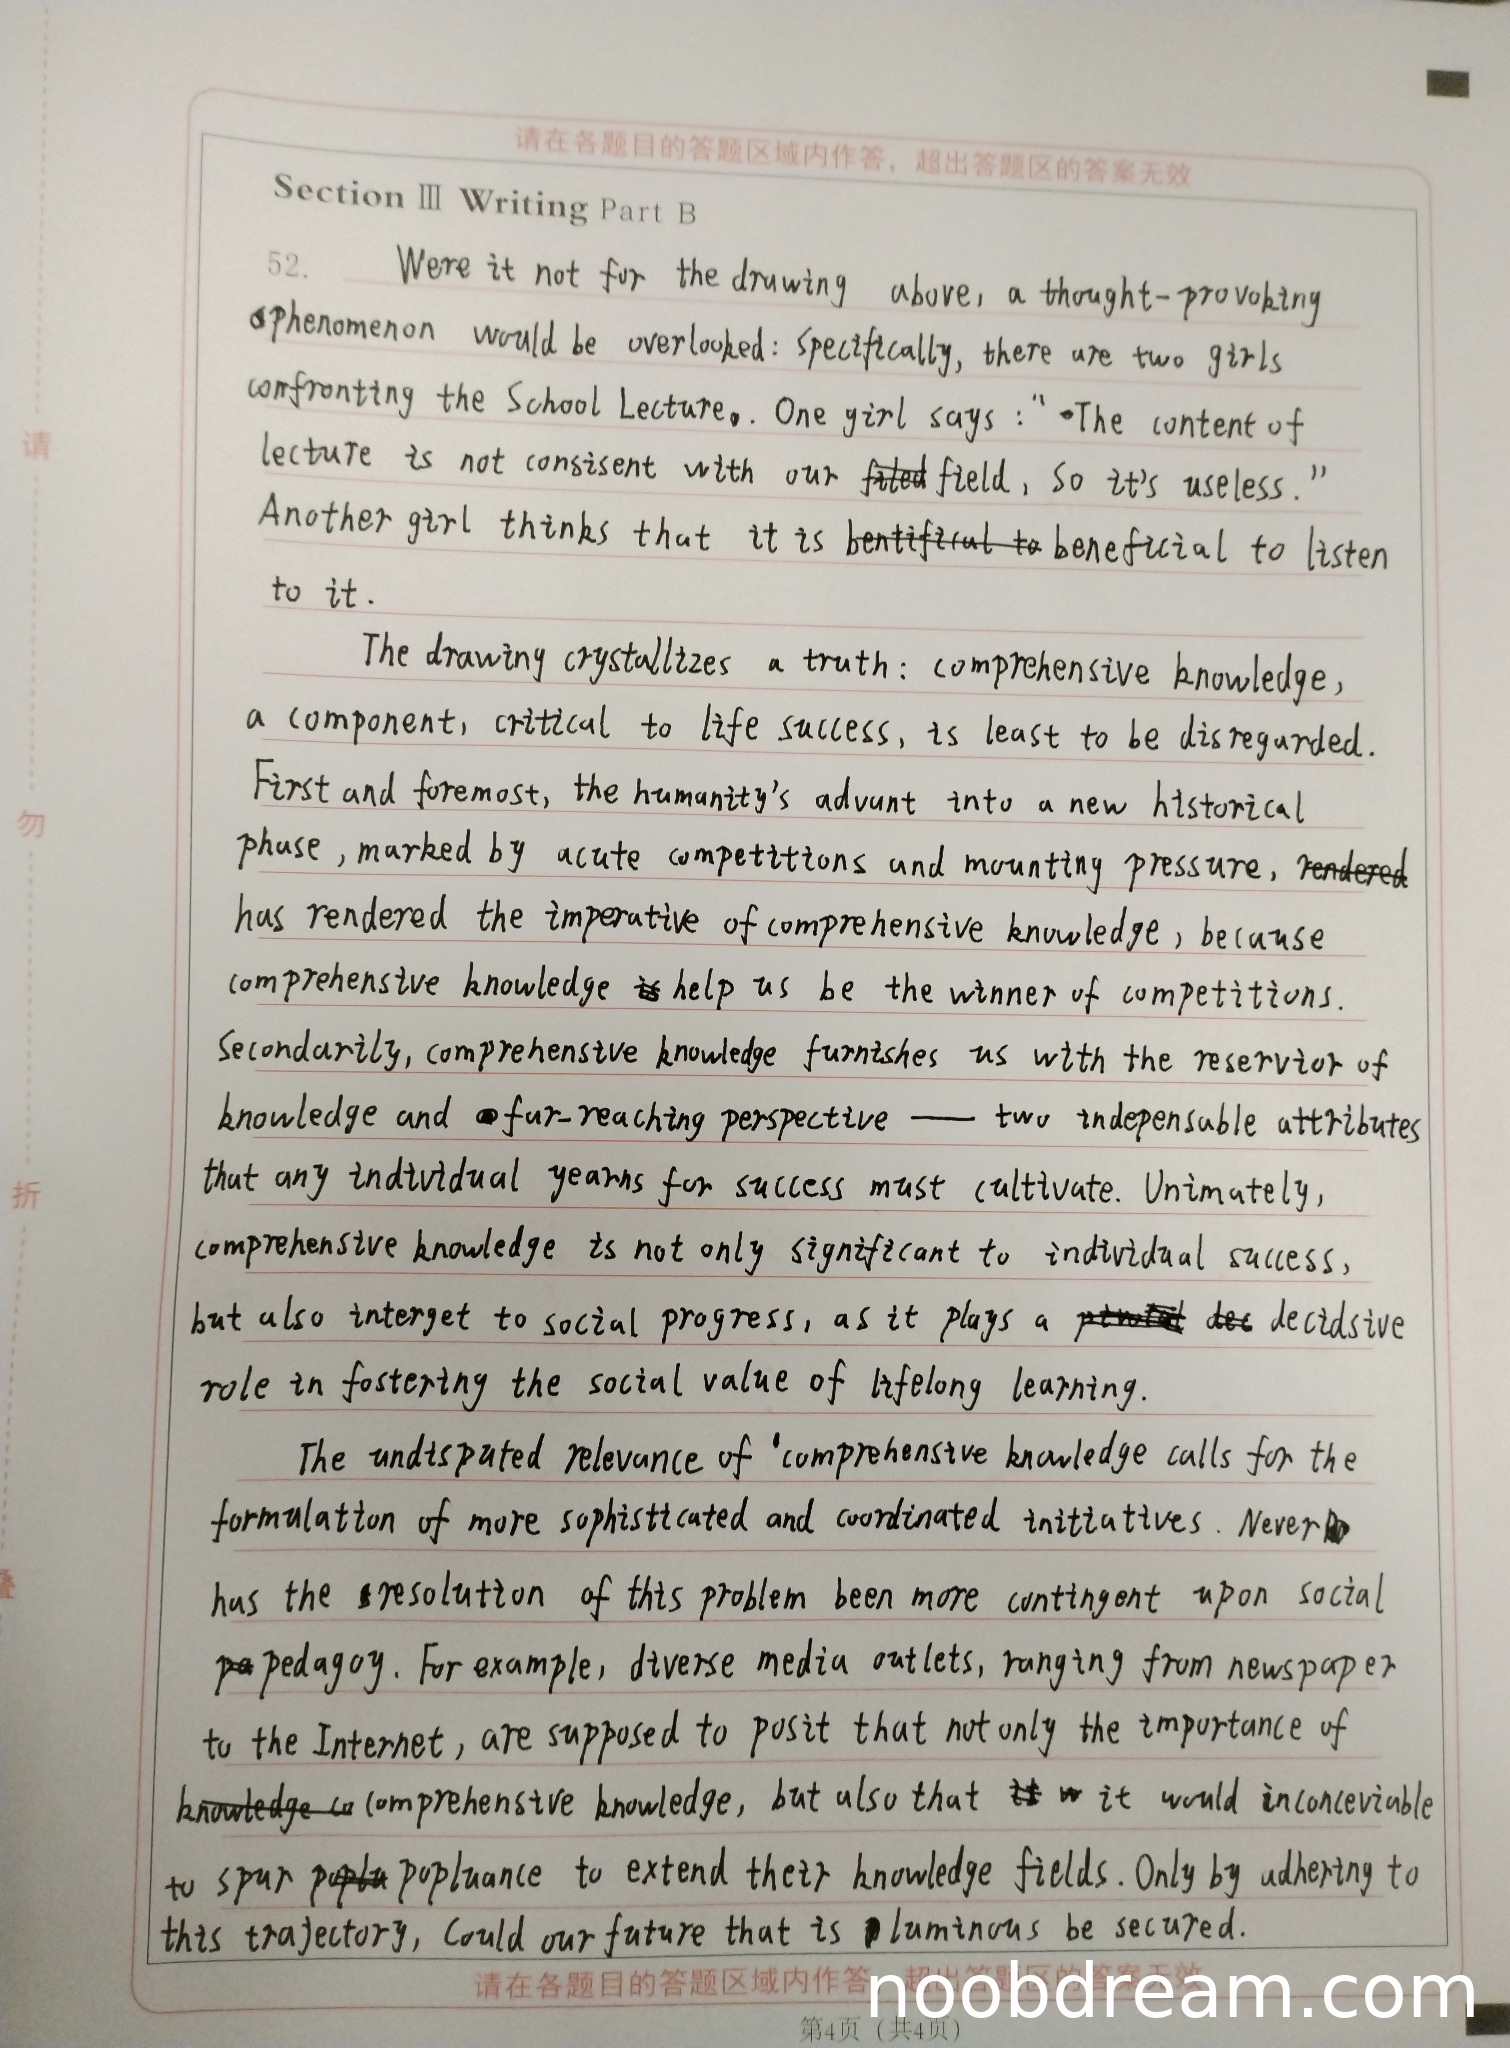 请在各题目的答题区域内作答，超出答题区的答案无效
Section Ⅲ Writing Part B
52. Were it not for the drawing above, a thought-provoking
phenomenon would be overlooked: Specifically, there are two girls
confronting the School Lecture. One girl says: " The content of
lecture is not consisent with our filed field, so it's useless."
Another girl thinks that it is bentifical to beneficial to listen
to it.
The drawing crystallizes a truth: comprehensive knowledge,
a component, critical to life success, is least to be disregarded.
First and foremost, the humanity's advant into a new historical
phase, marked by acute competitions and mounting pressure, rendered
has rendered the imperative of comprehensive knowledge, because
comprehensive knowledge is help us be the winner of competitions.
Secondarily, comprehensive knowledge furnishes us with the reservior of
knowledge and far-reaching perspective —— two indepensable attributes
that any individual yearns for success must cultivate. Unimately,
comprehensive knowledge is not only significant to individual success,
but also interget to social progress, as it plays a dec decidsive
role in fostering the social value of lifelong learning.
The undisputed relevance of comprehensive knowledge calls for the
formulation of more sophisticated and coordinated initiatives. Never
has the resolution of this problem been more contingent upon social
pe pedagoy. For example, diverse media outlets, ranging from newspaper
to the Internet, are supposed to posit that not only the importance of
knowledge co comprehensive knowledge, but also that it w it would inconceviable
to spur poplu popluance to extend their knowledge fields. Only by adhering to
this trajectory, Could our future that is luminous be secured.
请在各题目的答题区域内作答，超出答题区的答案无效
noobdream.com
第4页（共4页）
请
勿
折
叠